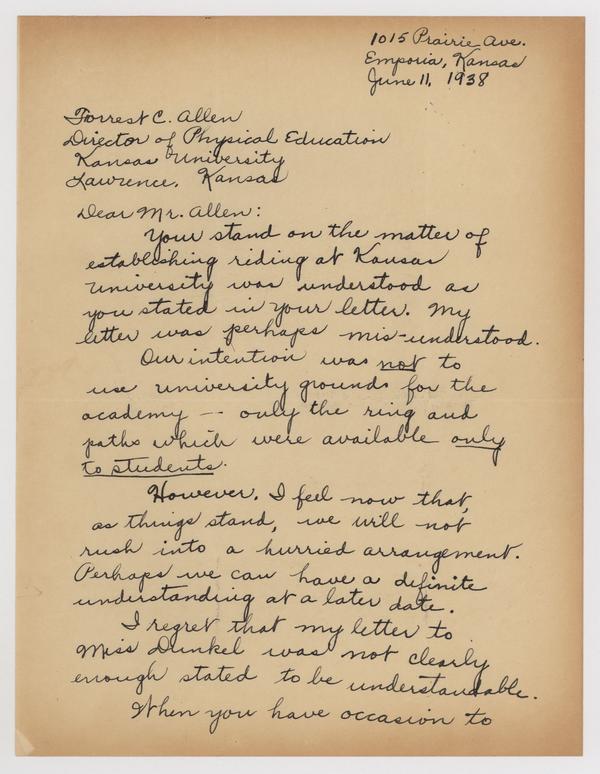 1015 Prairie Ave.
Emporia, Kansas
June 11, 1938
Forrest C. Allen
Director of Physical Education
Kansas University
Lawrence, Kansas
Dear Mr. Allen:
Your stand on the matter of
establishing riding at Kansas
University was understood as
you stated in your letter. My
letter was perhaps mis-understood.
Our intention was not to
use university grounds for the
academy -- only the ring and
paths which were available only
to students.
However, I feel now that,
as things stand, we will not
rush into a hurried arrangement.
Perhaps we can have a definite
understanding at a later date.
I regret that my letter to
Miss Dunkel was not clearly
enough stated to be understandable.
When you have occasion to